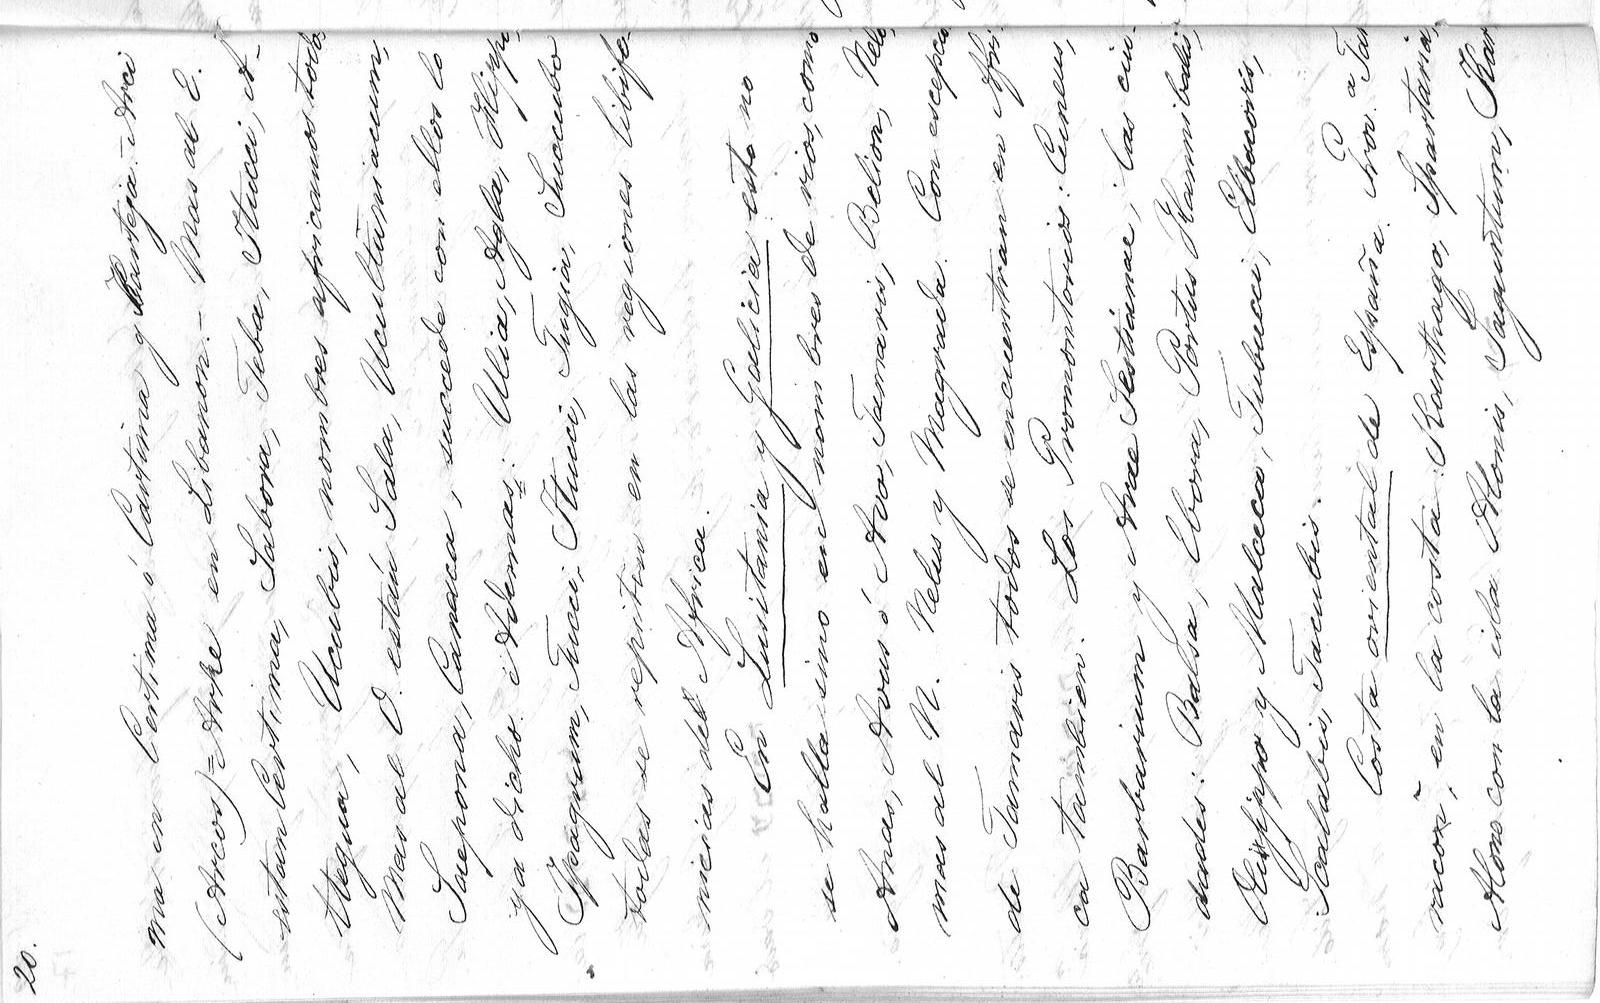 20.
ma en Certima ó Cartima y Karteja. Arci
(Arcos) = Arke en Libanon. - Mas al E.
estan Certima, Sabora, Teba, Ituci, A-
ttegua, Ucubis, nombres africanos todos
Mas al O. están Sala, Ucultuniacum,
Saepona, Canaca, sucede con ellos lo
ya dicho. Ademas: Ulia, Agla, Hippo,
Ipagum, Tucci, Ituci, Tugia, Succubo
todas se repiten en las regiones libife-
nicias del Africa.
En Lusitania y Galicia esto no
se halla sino en nombres de rios, como
Anas, Avus ó Avo, Tamaris, Belion, Nelo,
mas al N. Nelus y Magrada. Con escepcion
de Tamaris todos se encuentran en Afri-
ca tambien. Los Promontorios: Cuneus,
Barbarium y Arae Sestianae; las ciu-
dades: Balsa, Ebora, Portus Hannibalis,
Olisippo y Malceca, Tubucci, Eburis,
Scalabis, Tacubis.
Costa oriental de España. Prov.a Tar
racon, en la costa: Karthago, Spartaria,
Alone con la isla Alonis, Saguntum, Kar